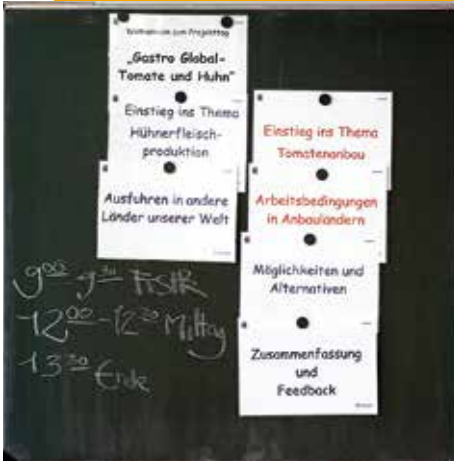 Willkommen zum Projekttag
„Gastro Global-
Tomate und Huhn"
Einstieg ins Thema
Hühnerfleisch-
produktion
Ausfuhren in andere
Länder unserer Welt
Einstieg ins Thema
Tomatenanbau
Arbeitsbedingungen
in Anbauländern
Möglichkeiten und
Alternativen
Zusammenfassung
und
Feedback
9⁰⁰ - 9³⁰
12⁰⁰ - 12³⁰ Mittag
13³⁰ Ende